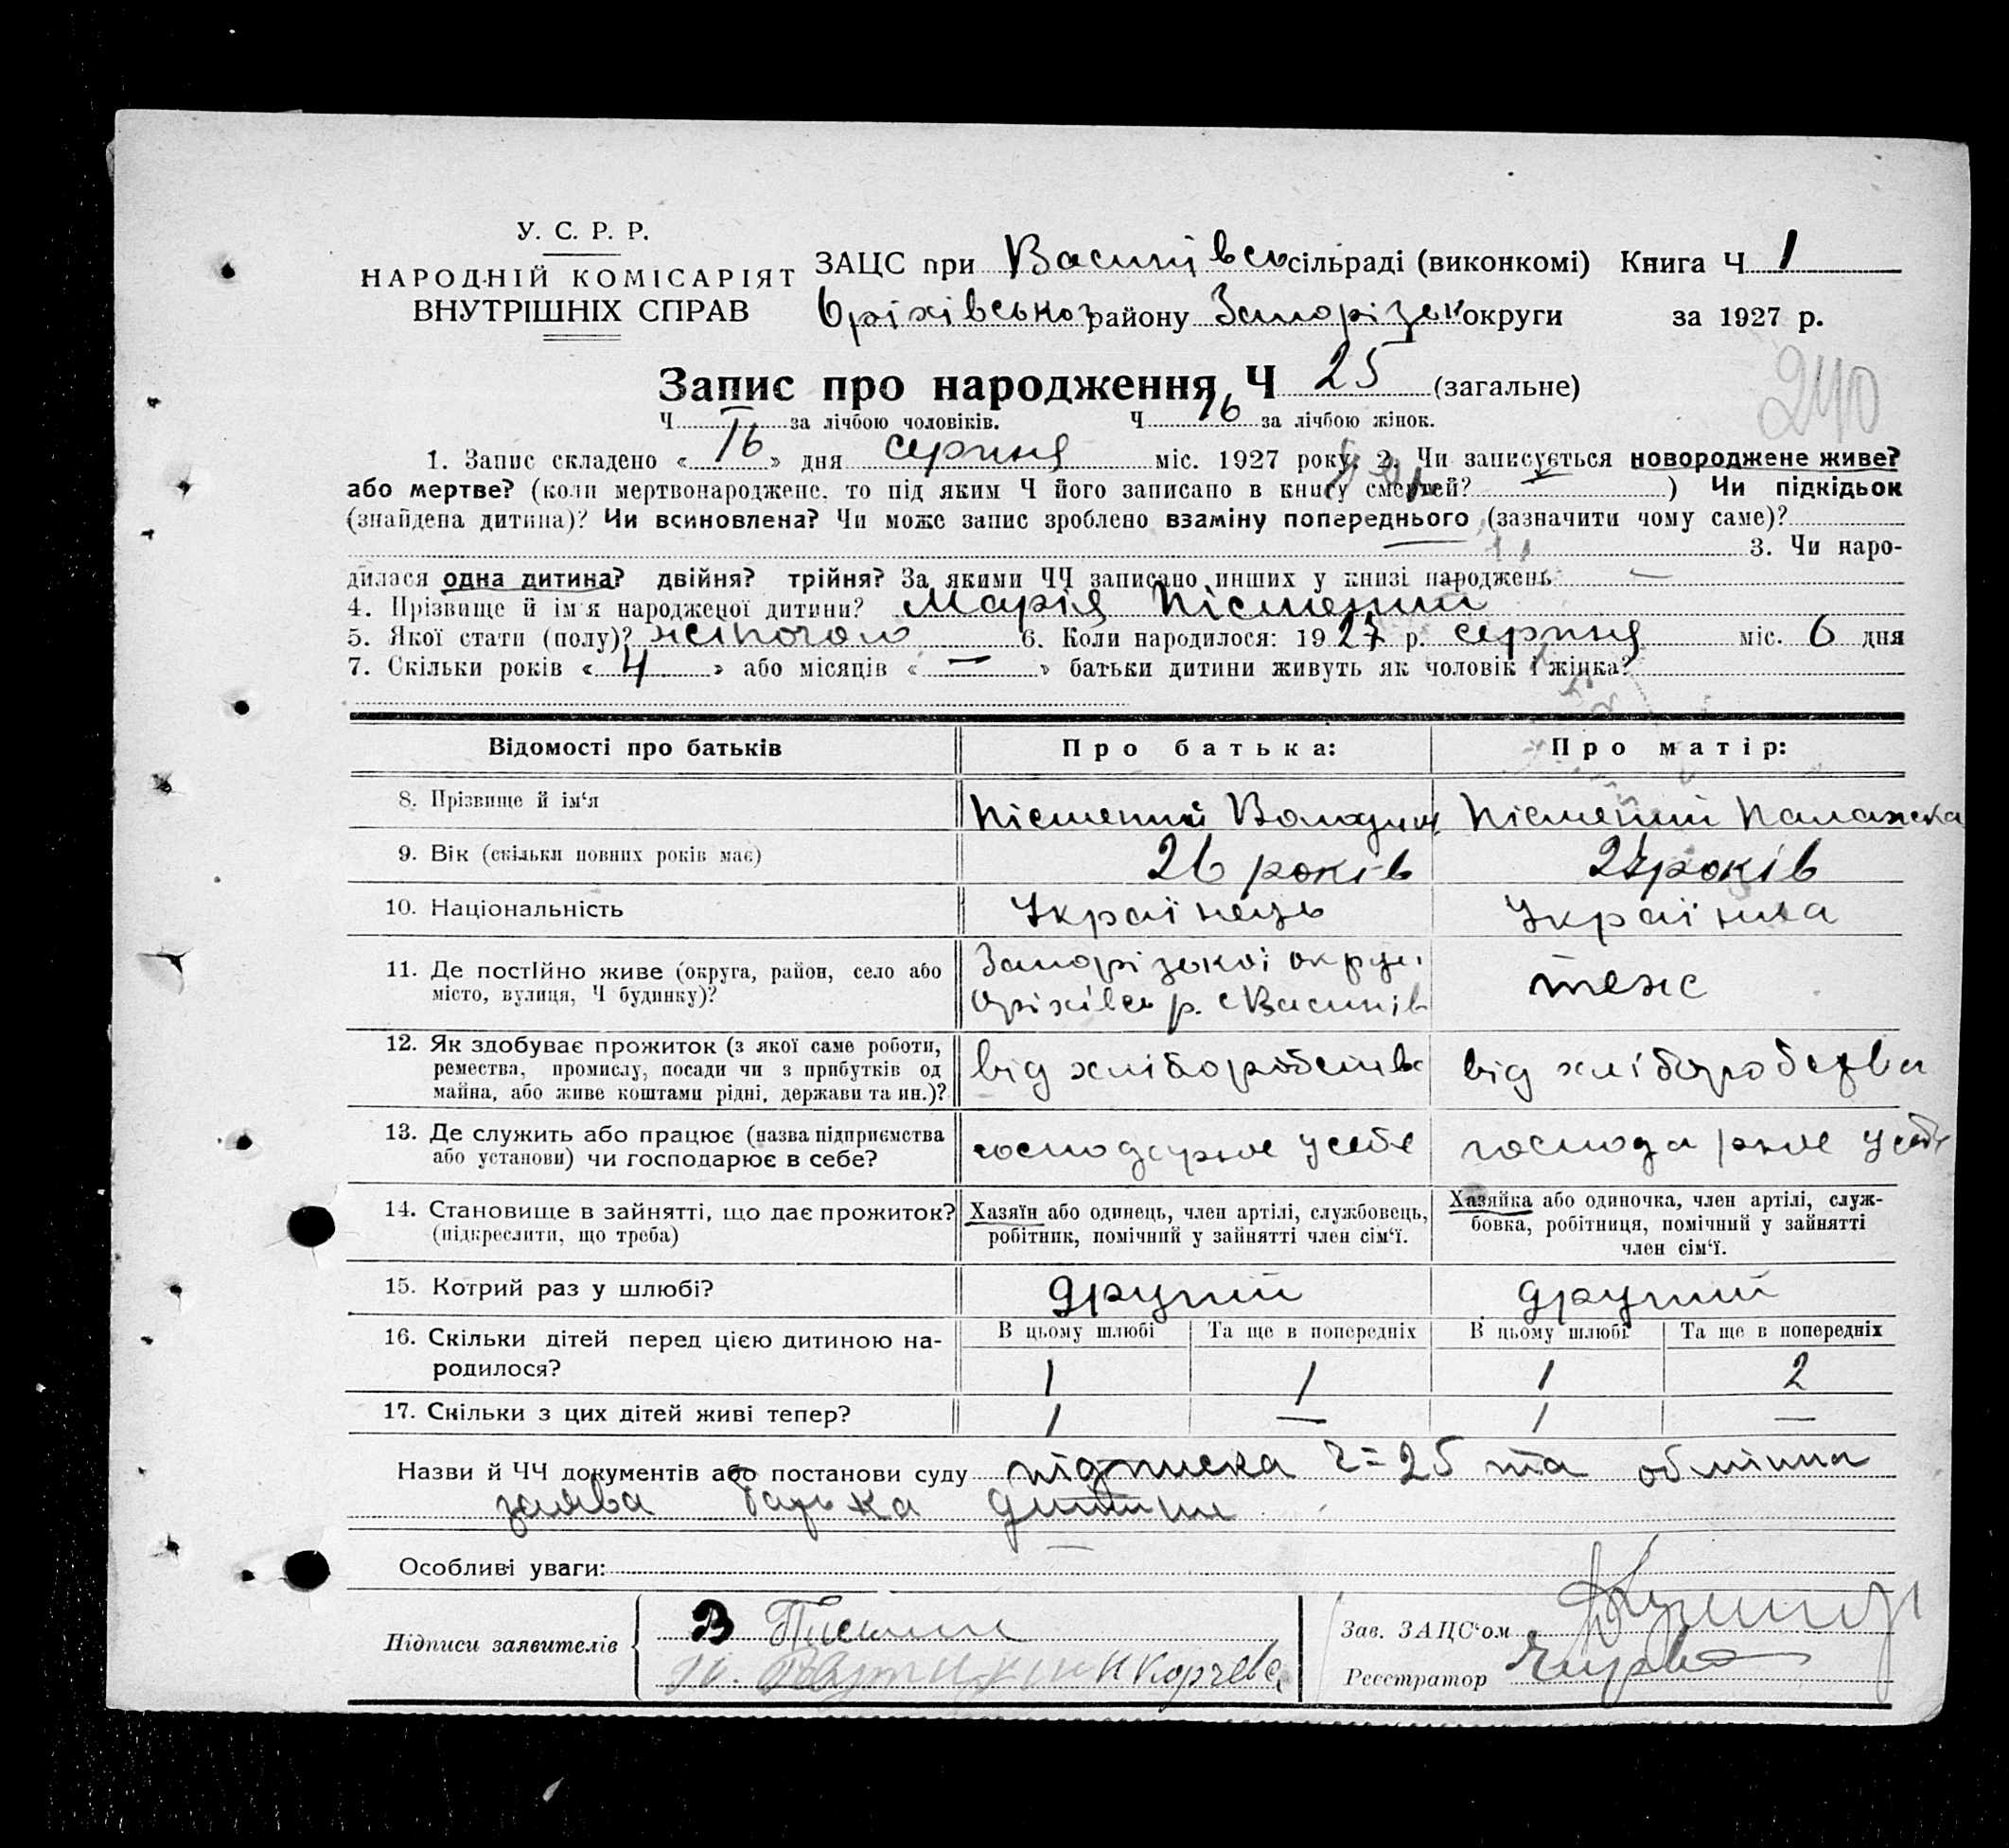 У. С. Р. Р.
НАРОДНІЙ КОМІСАРІЯТ
ВНУТРІШНІХ СПРАВ
ЗАЦС при Васинівсь сільраді (виконкомі) Книга Ч 1
Оріхівської району Запорізьк округи за 1927 р.
240
Запис про народження Ч 25 (загальне)
Ч за лічбою чоловіків. Ч 16 за лічбою жінок.
1. Запис складено « 16 » дня серпня міс. 1927 року. 2. Чи записується новороджене живе?
або мертве? (коли мертвонароджене, то під яким Ч його записано в книгу смертей? ) Чи підкідьок
(знайдена дитина)? Чи всиновлена? Чи може запис зроблено взаміну попереднього (зазначити чому саме)?
3. Чи наро-
дилася одна дитина? двійня? трійня? За якими ЧЧ записано инших у книзі народжень —
4. Прізвище й ім'я народженої дитини? Марія Пісмений
5. Якої стати (полу)? жіночого 6. Коли народилося: 1927 р. серпня міс. 6 дня
7. Скільки років « 4 » або місяців « — » батьки дитини живуть як чоловік і жінка?
Відомості про батьків Про батька: Про матір:
8. Прізвище й ім'я Пісмений Володим. Пісмений Палажка
9. Вік (скільки повних років має) 26 років років
10. Національність Українець Українка
11. Де постійно живе (округа, район, село або Запорізької округи теж
місто, вулиця, Ч будинку)? Оріхівсь р. с Васинів
12. Як здобуває прожиток (з якої саме роботи,
ремества, промислу, посади чи з прибутків од від хліборобства від хліборобства
майна, або живе коштами рідні, держави та ин.)?
13. Де служить або працює (назва підприємства господарює у себе господарює у себе
або установи) чи господарює в себе?
14. Становище в зайнятті, що дає прожиток? Хазяїн або одинець, член артілі, службовець, Хазяйка або одиночка, член артілі, служ-
(підкреслити, що треба) робітник, помічний у зайнятті член сім'ї. бовка, робітниця, помічний у зайнятті
член сім'ї.
15. Котрий раз у шлюбі? другий другий
16. Скільки дітей перед цією дитиною на- В цьому шлюбі Та ще в попередніх В цьому шлюбі Та ще в попередніх
родилося? 1 1 1 2
17. Скільки з цих дітей живі тепер? 1 — 1 —
Назви й ЧЧ документів або постанови суду підписка Ч=25 та
заява батька дитини
Особливі уваги:
Підписи заявителів В
Н Корчева
Зав. ЗАЦС'ом
Реєстратор